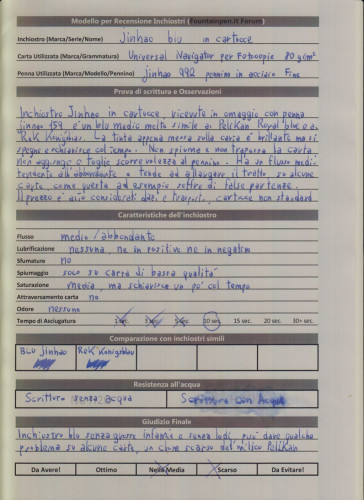 Modello per Recensione Inchiostri (Fountainpen.it Forum)
Inchiostro (Marca/Serie/Nome) Jinhao blu in cartucce
Carta Utilizzata (Marca/Grammatura) Universal Navigator per Fotocopie 80 g/m²
Penna Utilizzata (Marca/Modello/Pennino) Jinhao 992 pennino in acciaio Fine
Prova di scrittura e Osservazioni
Inchiostro Jinhao in cartucce, ricevute in omaggio con penna
Jinhao 159 è un blu medio molto simile al Pelikan Royal blue o a
R&K Konigblau. La tinta appena messa sulla carta è brillante ma si
spegne e schiarisce col tempo. Non spiuma e non trapassa la carta
non aggiunge o toglie scorrevolezza al pennino. Ha un flusso medio
tendente all'abbondante e tende ad allargare il tratto, su alcune
carte come questa ad esempio soffre di false partenze.
Il prezzo è alto considerati dazi e trasporti, cartucce non standard
Caratteristiche dell'inchiostro
Flusso medio/abbondante
Lubrificazione nessuna, ne in positivo ne in negativo
Sfumature no
Spiumaggio solo su carta di bassa qualita'
Saturazione media, ma schiarisce un po' col tempo
Attraversamento carta no
Odore nessuno
Tempo di Asciugatura 1 sec. 3 sec. 5 sec. 10 sec. 15 sec. 20 sec. 30+ sec.
Comparazione con inchiostri simili
BLU Jinhao R&K Konigsblau
Resistenza all'acqua
Scrittura senza acqua Scrittura con Acqua
Giudizio Finale
Inchiostro blu senza grosse infamie e senza lodi, puo' dare qualche
problema su alcune carte, un clone scarso del mitico Pelikan
Da Avere! Ottimo Nella Media Scarso Da Evitare!